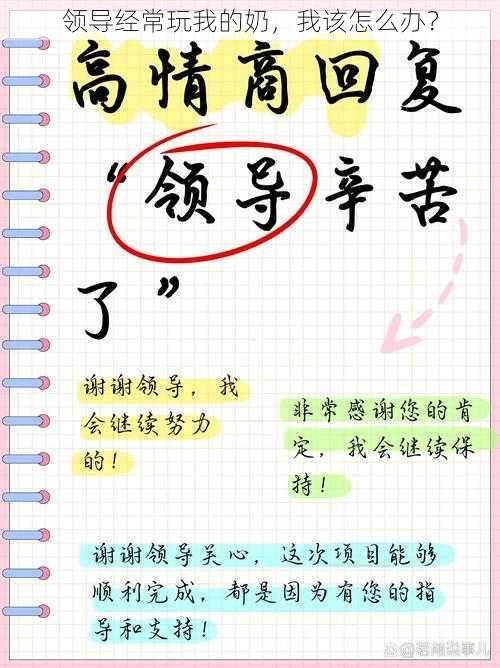 领导经常玩我的奶，我该怎么办？
高情商回复
“领导辛苦
了”
谢谢领导，我
会继续努力
的！
非常感谢您的肯
定，我会继续保
持！
谢谢领导关心，这次项目能够
顺利完成，都是因为有您的指
导和支持！